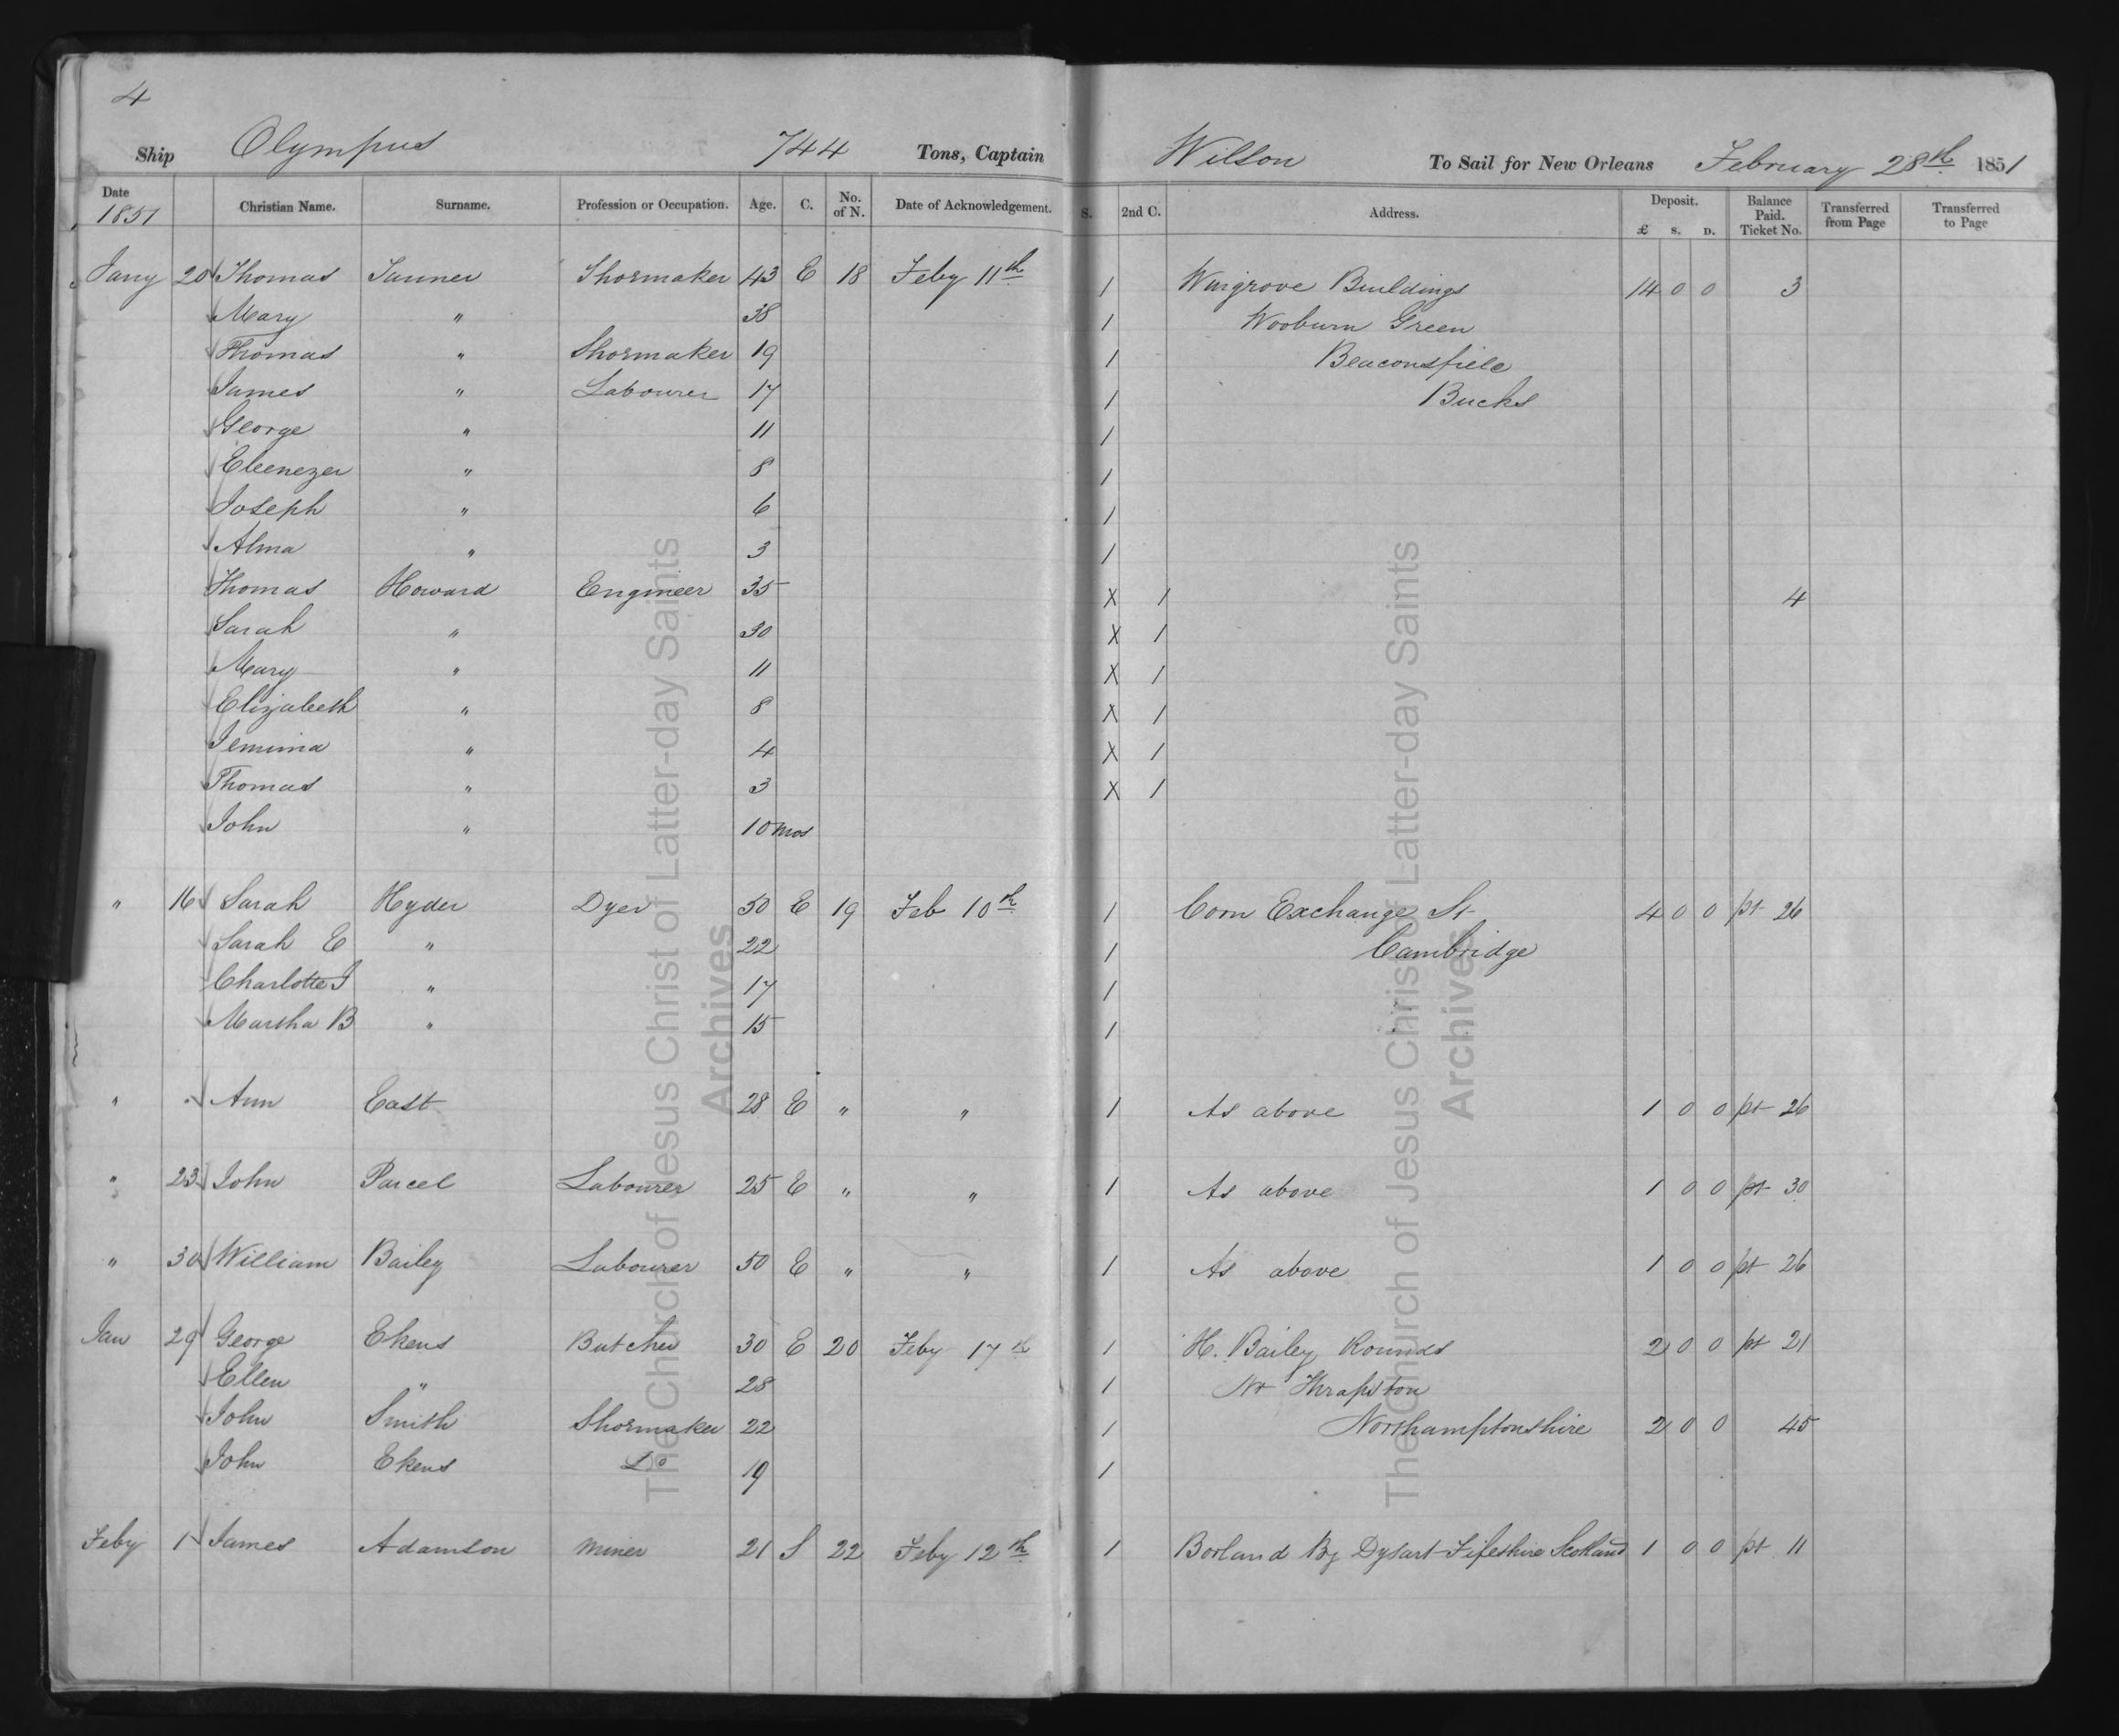 4
Ship Olympus 744 Tons, Captain Wilson To Sail for New Orleans February 28th 1851
Date 1851 Christian Name. Surname. Profession or Occupation. Age. C. No. of N. Date of Acknowledgement. S. 2nd C. Address. Deposit. £ S. D. Balance Paid. Ticket No. Transferred from Page Transferred to Page
Jany 20 Thomas Tanner Shoemaker 43 E 18 Feby 11th 1 Wingrove Buildings 14 0 0 3
Mary " 38 1 Wooburn Green
Thomas " Shoemaker 19 1 Beaconsfield
James " Labourer 17 1 Bucks
George " 11 1
Ebenezer " 8 1
Joseph " 6 1
Alma " 3 1
Thomas Howard Engineer 35 X 1 4
Sarah " 30 X 1
Mary " 11 X 1
Elizabeth " 8 X 1
Jemima " 4 X 1
Thomas " 3 X 1
John " 10 mos
" 16 Sarah Hyder Dyer 50 E 19 Feb 10th 1 Corn Exchange St 4 0 0 pt 26
Sarah E " 22 1 Cambridge
Charlotte J " 17 1
Martha B " 15 1
" " Ann East 28 E " " 1 As above 1 0 0 pt 26
" 23 John Parcel Labourer 25 E " " 1 As above 1 0 0 pt 30
" 30 William Bailey Labourer 50 E " " 1 As above 1 0 0 pt 26
Jan 29 George Ekens Butcher 30 E 20 Feby 17th 1 H. Bailey Rounds 2 0 0 pt 21
Ellen " 28 1 Nr Thrapston
John Smith Shoemaker 22 1 Northamptonshire 2 0 0 45
John Ekens Do 19 1
Feby 1 James Adamson Miner 21 S 22 Feby 12th 1 Borland By Dysart Fifeshire Scotland 1 0 0 pt 11
The Church of Jesus Christ of Latter-day Saints
Archives
The Church of Jesus Christ of Latter-day Saints
Archives